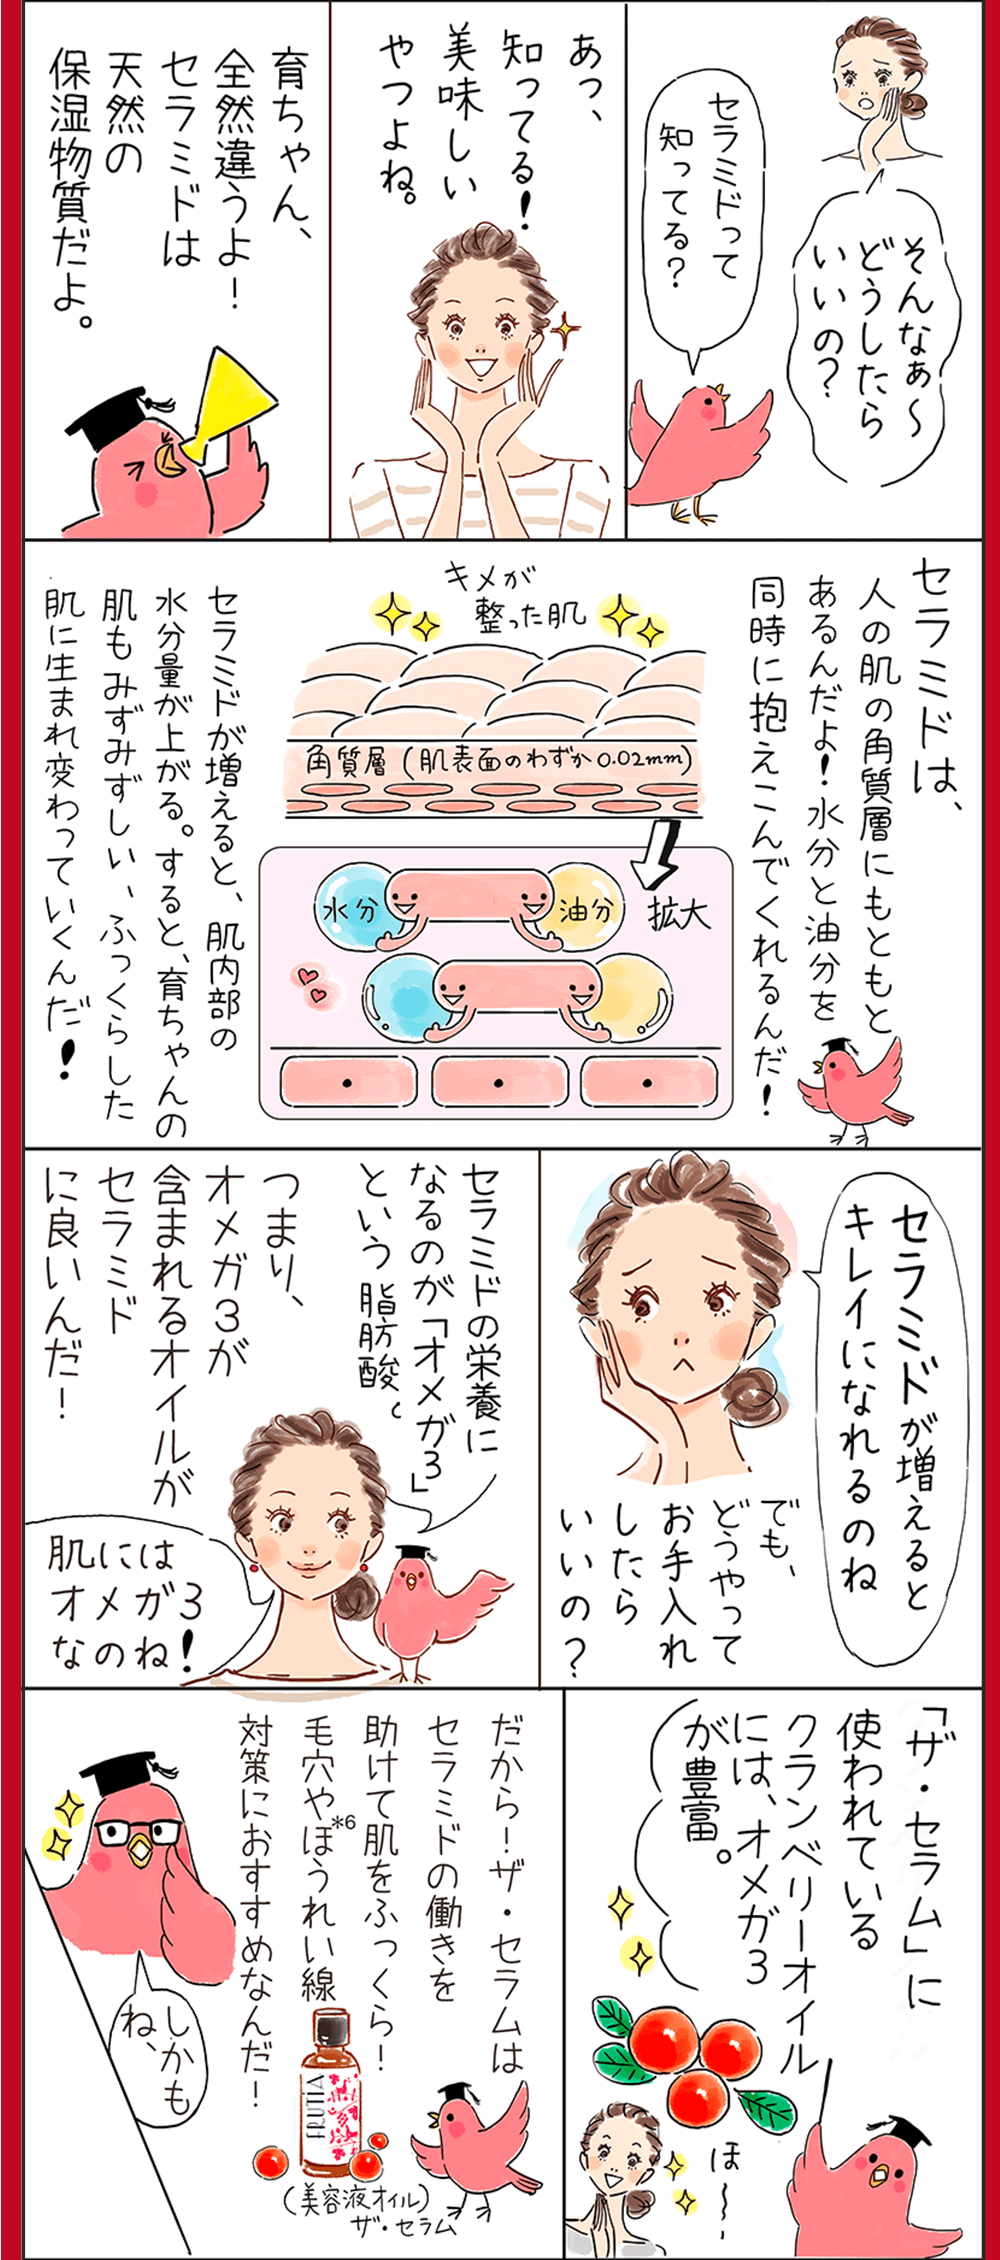 そんなぁ〜
どうしたら
いいの？
セラミドって
知ってる？
あっ、
知ってる！
美味しい
やつよね。
育ちゃん、
全然違うよ！
セラミドは
天然の
保湿物質だよ。
セラミドは、
人の肌の角質層にもともと
あるんだよ！水分と油分を
同時に抱えこんでくれるんだ！
キメが
整った肌
角質層（肌表面のわずか0.02mm）
拡大
水分
油分
セラミドが増えると、肌内部の
水分量が上がる。すると、育ちゃんの
肌もみずみずしい、ふっくらした
肌に生まれ変わっていくんだ！
セラミドが増えると
キレイになれるのね
でも、
どうやって
お手入れ
したら
いいの？
セラミドの栄養に
なるのが「オメガ3」
という脂肪酸。
つまり、
オメガ3が
含まれるオイルが
セラミド
に良いんだ！
肌には
オメガ3
なのね！
「ザ・セラム」に
使われている
クランベリーオイル
には、オメガ3
が豊富。
ほ〜
だから！ザ・セラムは
セラミドの働きを
助けて肌をふっくら！
毛穴やほうれい線
*6
対策におすすめなんだ！
FRUTIA
（美容液オイル）
ザ・セラム
しかも
ね、